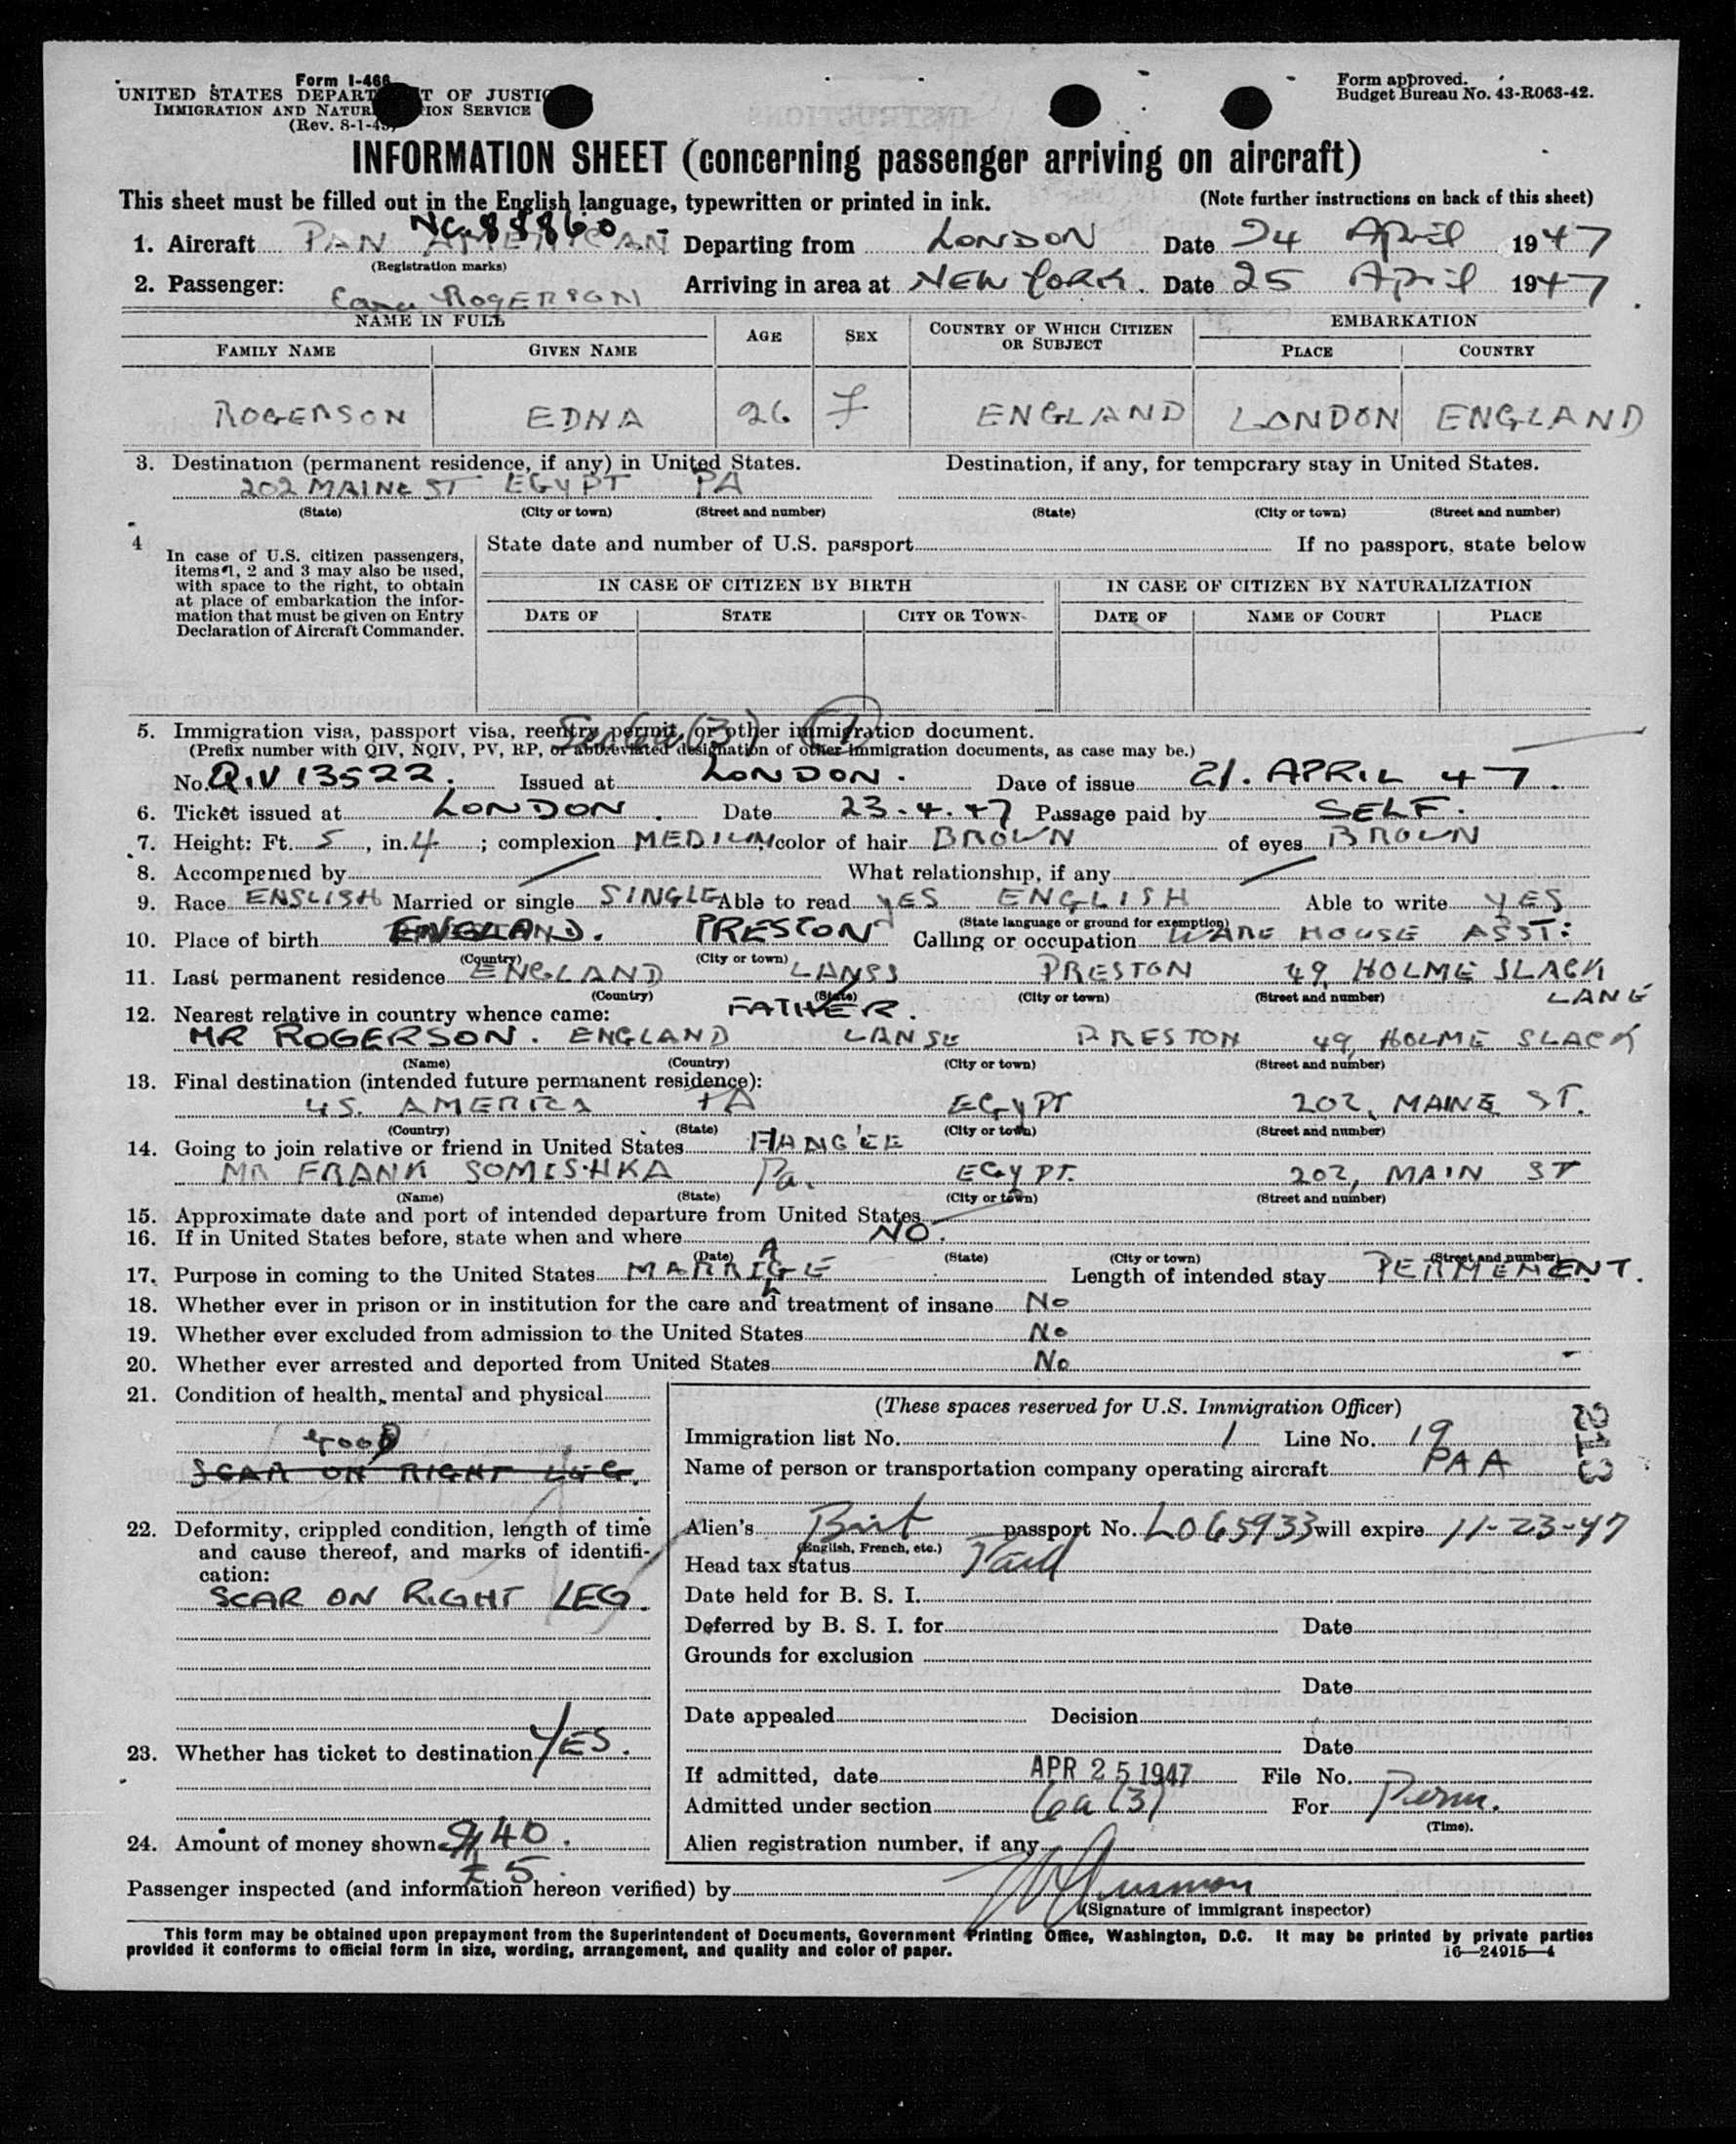 Form I-466
UNITED STATES DEPARTMENT OF JUSTICE
IMMIGRATION AND NATURALIZATION SERVICE
(Rev. 8-1-45)
Form approved.
Budget Bureau No. 43-R063-42.
INFORMATION SHEET (concerning passenger arriving on aircraft)
This sheet must be filled out in the English language, typewritten or printed in ink. (Note further instructions on back of this sheet)
NC.88860
1. Aircraft PAN AMERICAN Departing from LONDON Date 24 April 1947
(Registration marks)
2. Passenger: Edna ROGERSON Arriving in area at NEW YORK. Date 25 April 1947
NAME IN FULL AGE SEX COUNTRY OF WHICH CITIZEN OR SUBJECT EMBARKATION
FAMILY NAME GIVEN NAME PLACE COUNTRY
ROGERSON EDNA 26 F ENGLAND LONDON ENGLAND
3. Destination (permanent residence, if any) in United States. Destination, if any, for temporary stay in United States.
202 MAINE ST EGYPT PA
(State) (City or town) (Street and number) (State) (City or town) (Street and number)
4 In case of U.S. citizen passengers, items 1, 2 and 3 may also be used, with space to the right, to obtain at place of embarkation the information that must be given on Entry Declaration of Aircraft Commander.
State date and number of U.S. passport If no passport, state below
IN CASE OF CITIZEN BY BIRTH IN CASE OF CITIZEN BY NATURALIZATION
DATE OF STATE CITY OR TOWN DATE OF NAME OF COURT PLACE
5. Immigration visa, passport visa, reentry permit, or other immigration document.
(Prefix number with QIV, NQIV, PV, RP, or abbreviated designation of other immigration documents, as case may be.)
No. Q.IV 13522. Issued at LONDON. Date of issue 21. APRIL 47.
6. Ticket issued at LONDON. Date 23-4-47 Passage paid by SELF.
7. Height: Ft. 5, in. 4; complexion MEDIUM color of hair BROWN of eyes BROWN
8. Accompanied by What relationship, if any
9. Race ENGLISH Married or single SINGLE Able to read YES ENGLISH Able to write YES
(State language or ground for exemption)
10. Place of birth ENGLAND. PRESTON Calling or occupation WARE HOUSE ASST:
(Country) (City or town)
11. Last permanent residence ENGLAND LANSS PRESTON 49, HOLME SLACK LANE
(Country) (State) (City or town) (Street and number)
12. Nearest relative in country whence came: FATHER.
MR ROGERSON. ENGLAND LANSE PRESTON 49, HOLME SLACK
(Name) (Country) (City or town) (Street and number)
13. Final destination (intended future permanent residence):
US. AMERICA PA EGYPT 202, MAINE ST.
(Country) (State) (City or town) (Street and number)
14. Going to join relative or friend in United States FIANC'EE
MR FRANK SOMISHKA Pa. EGYPT. 202, MAIN ST
(Name) (State) (City or town) (Street and number)
15. Approximate date and port of intended departure from United States
16. If in United States before, state when and where NO.
(Date) (State) (City or town) (Street and number)
17. Purpose in coming to the United States MARRIAGE Length of intended stay PERMENENT.
18. Whether ever in prison or in institution for the care and treatment of insane No
19. Whether ever excluded from admission to the United States No
20. Whether ever arrested and deported from United States No
21. Condition of health, mental and physical
good
SCAR ON RIGHT LEG.
22. Deformity, crippled condition, length of time and cause thereof, and marks of identification:
SCAR ON RIGHT LEG.
23. Whether has ticket to destination YES.
24. Amount of money shown $40.
£5.
(These spaces reserved for U.S. Immigration Officer)
213
Immigration list No. 1 Line No. 19
Name of person or transportation company operating aircraft PAA
Alien's Brit passport No. L065933 will expire 11-23-47
(English, French, etc.)
Head tax status Paid
Date held for B. S. I.
Deferred by B. S. I. for Date
Grounds for exclusion
Date
Date appealed Decision
Date
If admitted, date APR 25 1947 File No.
Admitted under section 6a(3) For Perm.
(Time).
Alien registration number, if any
Passenger inspected (and information hereon verified) by
(Signature of immigrant inspector)
This form may be obtained upon prepayment from the Superintendent of Documents, Government Printing Office, Washington, D.C. It may be printed by private parties
provided it conforms to official form in size, wording, arrangement, and quality and color of paper. 16—24915—4